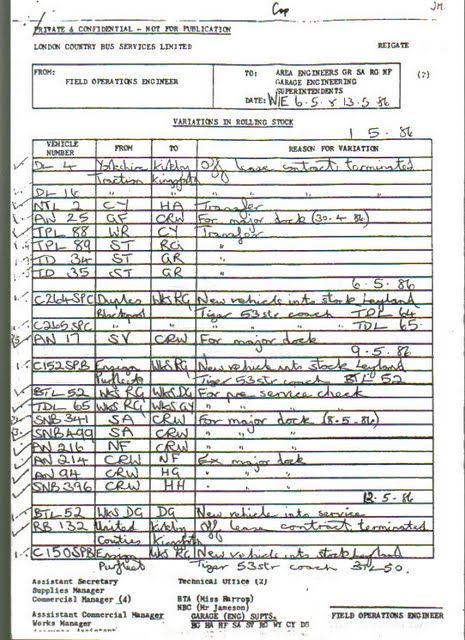 Cop
JM.
PRIVATE & CONFIDENTIAL - NOT FOR PUBLICATION
LONDON COUNTRY BUS SERVICES LIMITED REIGATE
FROM: FIELD OPERATIONS ENGINEER
TO: AREA ENGINEERS GR SA RG NF
GARAGE ENGINEERING
SUPERINTENDENTS
(2)
DATE: W/E 6.5. & 13.5.86
VARIATIONS IN ROLLING STOCK
1.5.86
VEHICLE NUMBER FROM TO REASON FOR VARIATION
DL 4 Yorkshire Kirkby Off lease contract terminated
Traction Kingforth
DL 16 " " " " "
NTL 2 CY HA Transfer
AN 25 GF CRW For major dock (30.4.86)
TPL 88 WR CY Transfer
TPL 89 ST RG "
TD 34 ST GR "
TD 35 ST GR "
6.5.86
C264SPC Duples WKS RG New vehicle into stock Leyland
Blackpool Tiger 53str coach TDL 64
C265SPC " " " " TDL 65
AN 17 SY CRW For major dock
9.5.86
C152SPB Ensign WKS RG New vehicle into stock Leyland
Purfleet Tiger 53str coach BTL 52
BTL 52 WKS RG WKS DG For pre service check
TDL 65 WKS RG WKS GY " " "
SNB 341 SA CRW For major dock (8.5.86)
SNB 499 SA CRW " " "
AN 216 NF CRW " " "
AN 214 CRW NF Ex major dock
AN 94 CRW HG " "
SNB 396 CRW HH " "
12.5.86
BTL 52 WKS DG DG New vehicle into service
RB 132 United Kirkby Off lease contract terminated
Counties Kingforth
C150SPB Ensign WKS RG New vehicle into stock Leyland
Purfleet Tiger 53str coach BTL 50.
Assistant Secretary Technical Office (2)
Supplies Manager
Commercial Manager (4) BTA (Miss Harrop)
NBC (Mr Jameson)
Assistant Commercial Manager GARAGE (ENG) SUPTS. FIELD OPERATIONS ENGINEER
Works Manager